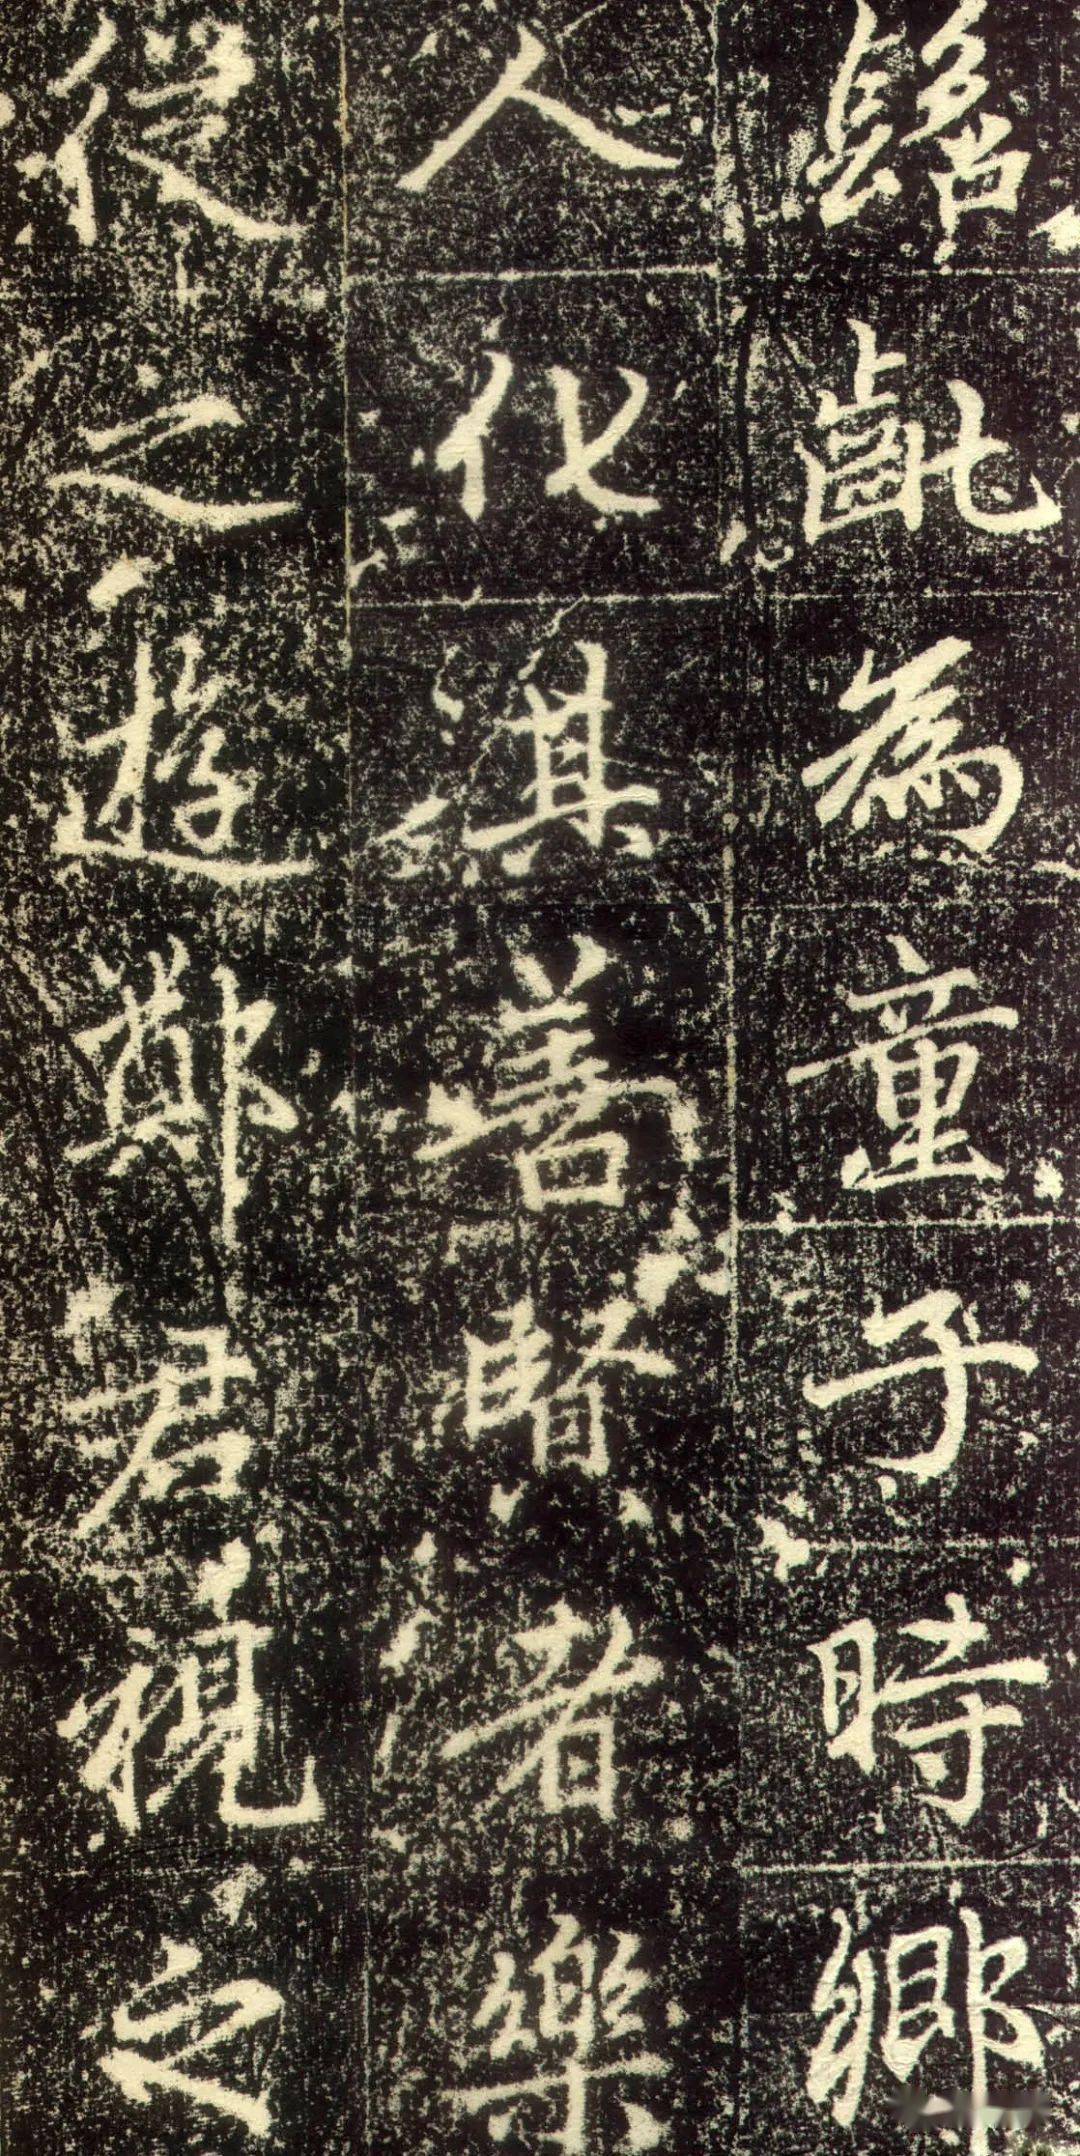 髫齔為童子時鄉
人化其善賢者樂
從之遊鄭君視之